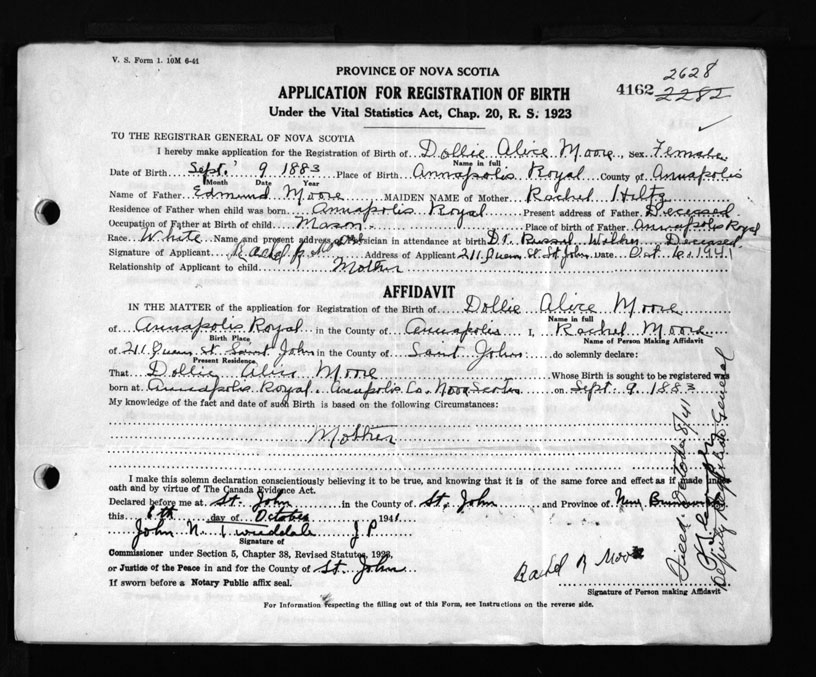 V. S. Form 1. 10M 6-41
PROVINCE OF NOVA SCOTIA
2628
APPLICATION FOR REGISTRATION OF BIRTH
4162 2282
Under the Vital Statistics Act, Chap. 20, R. S. 1923
TO THE REGISTRAR GENERAL OF NOVA SCOTIA
I hereby make application for the Registration of Birth of Dollie Alice Moore, Sex Female
Name in full
Date of Birth Sept. 9 1883 Place of Birth Annapolis Royal County of Annapolis
Month Date Year
Name of Father Edmund Moore MAIDEN NAME of Mother Rachel Hiltz
Residence of Father when child was born Annapolis Royal Present address of Father Deceased
Occupation of Father at Birth of child Mason Place of birth of Father Annapolis Royal
Race White Name and present address of Physician in attendance at birth Dr. Deceased
Signature of Applicant Rachel R Moore Address of Applicant 211 Queen St St John Date Oct 6, 1941
Relationship of Applicant to child Mother
AFFIDAVIT
IN THE MATTER of the application for Registration of the Birth of Dollie Alice Moore
Name in full
of Annapolis Royal in the County of Annapolis I, Rachel Moore
Birth Place Name of Person Making Affidavit
of 211 Queen St Saint John in the County of Saint John do solemnly declare:
Present Residence
That Dollie Alice Moore Whose Birth is sought to be registered was
born at Annapolis Royal Annapolis Co. Nova Scotia on Sept 9 1883
My knowledge of the fact and date of such Birth is based on the following Circumstances:
Mother
I make this solemn declaration conscientiously believing it to be true, and knowing that it is of the same force and effect as if made under
oath and by virtue of The Canada Evidence Act.
Declared before me at St. John in the County of St. John and Province of New Brunswick
this 6th day of October 1941
John N. J P
Signature of
Commissioner under Section 5, Chapter 38, Revised Statutes, 1923,
or Justice of the Peace in and for the County of St. John
If sworn before a Notary Public affix seal.
Rachel R Moore
Signature of Person making Affidavit
For Information respecting the filling out of this Form, see Instructions on the reverse side.
Filed October 8/41
Deputy Registrar General